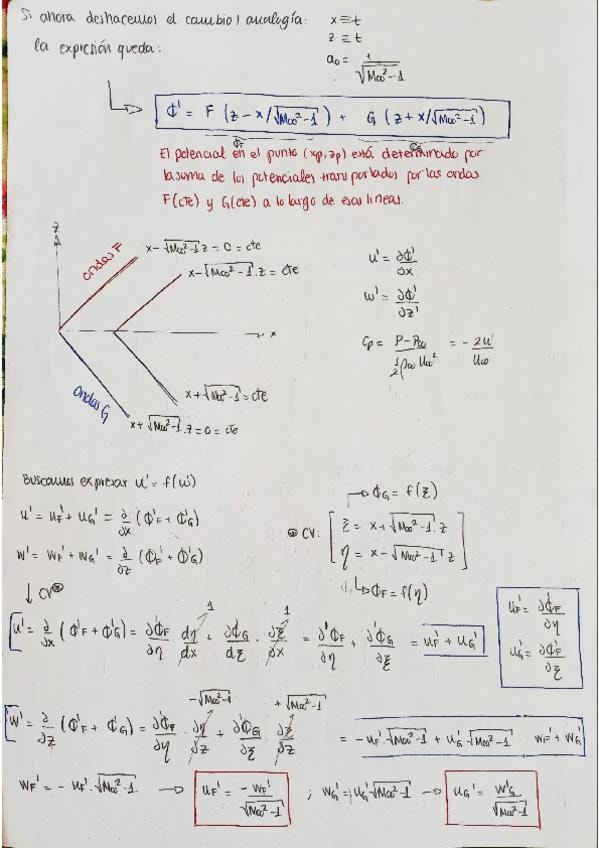 Si ahora deshacemos el cambio/analogía: x ≡ t
z ≡ t
la expresión queda: a₀ = 1/√(M∞²-1)
Φ' = F (z - x/√(M∞²-1)) + G (z + x/√(M∞²-1))
Φ_F Φ_G
El potencial en el punto (xp, zp) está determinado por
la suma de los potenciales transportados por las ondas
F(cte) y G(cte) a lo largo de esas líneas.
z
ondas F
x - √(M∞²-1) z = 0 = cte
x - √(M∞²-1) . z = cte
x
x + √(M∞²-1) = cte
ondas G
x + √(M∞²-1) . z = 0 = cte
u' = ∂Φ'/∂x
w' = ∂Φ'/∂z'
Cp = (P - P∞)/(½ρ∞ U∞²) = - 2u'/U∞
Buscamos expresar u' = f(w')
u' = u_F' + u_G' = ∂/∂x (Φ'_F + Φ'_G)
w' = w_F' + w_G' = ∂/∂z (Φ'_F + Φ'_G)
↓ CV⊛
→ Φ_G = f(ξ)
⊛ CV: [ ξ = x + √(M∞²-1) . z
η = x - √(M∞²-1) z ]
↳ Φ_F = f(η)
u' = ∂/∂x (Φ'_F + Φ'_G) = ∂Φ'_F/∂η dη/dx + ∂Φ'_G/dξ . ∂ξ/∂x = ∂'Φ_F/∂η + ∂'Φ_G/∂ξ = u_F' + u_G'
1 1
u_F' = ∂Φ'_F/∂η
u_G' = ∂Φ'_F/∂ξ
-√(M∞²-1) +√(M∞²-1)
w' = ∂/∂z (Φ'_F + Φ'_G) = ∂Φ'_F/∂η . ∂η/∂z + ∂Φ'_G/∂ξ ∂ξ/∂z = -u_F' √(M∞²-1) + u_G' √(M∞²-1) w_F' + w_G'
w_F' = - u_F' . √(M∞²-1) → u_F' = -w_F'/√(M∞²-1) ; w_G' = u_G' √(M∞²-1) → u_G' = w'_G/√(M∞²-1)